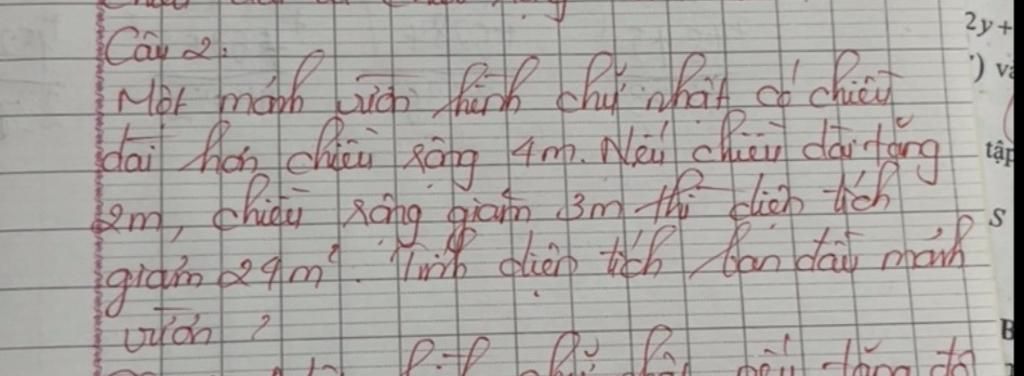 Câu 2:
Một mảnh vườn hình chữ nhật có chiều
dài hơn chiều rộng 4m. Nếu chiều dài tăng
2m, chiều rộng giảm 3m thì diện tích
giảm 24m². Tính diện tích ban đầu mảnh
vườn?
2y+
) và
tập
S
B